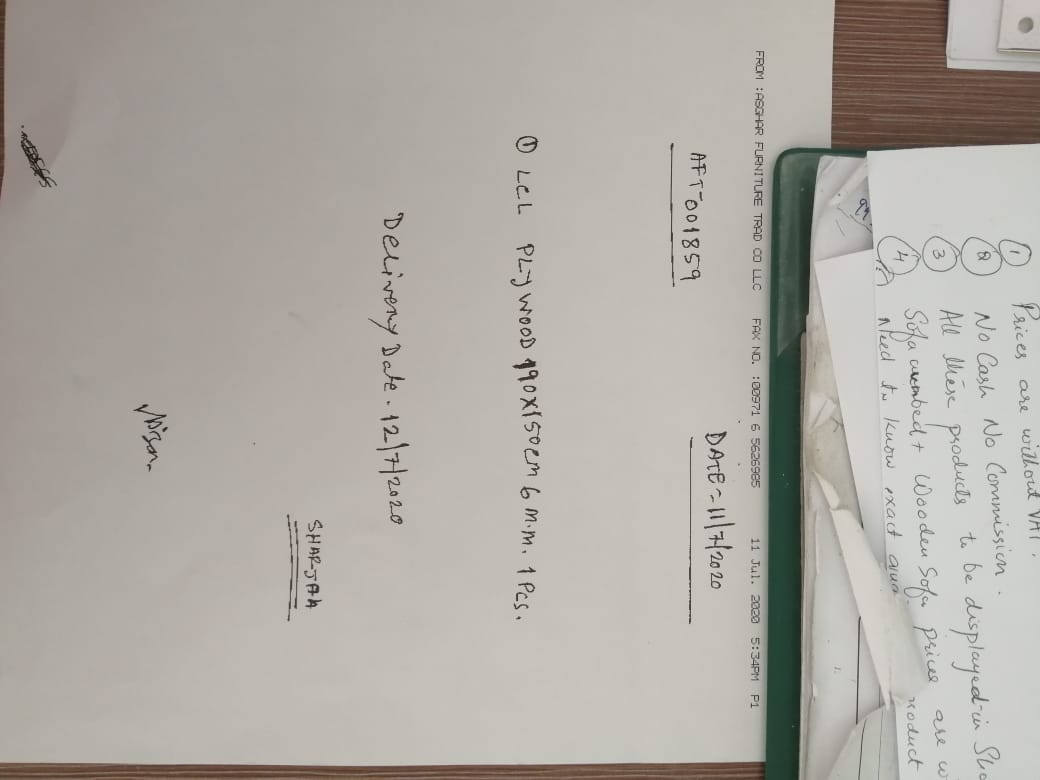 ① Prices are without VAT.
② No Cash No Commission.
③ All these products to be displayed in Sho
④ Sofa cumbed + Wooden Sofa prices are w
Need to know exact roduct
FROM :ASGHAR FURNITURE TRAD CO LLC FAX NO. :00971 6 5626985 11 Jul. 2020 5:34PM P1
AFT-001859 DATE = 11/7/2020
① LCL PLyWOOD 190X150cm 6 M.M. 1 Pcs.
Delivery Date. 12/7/2020
SHARJAH